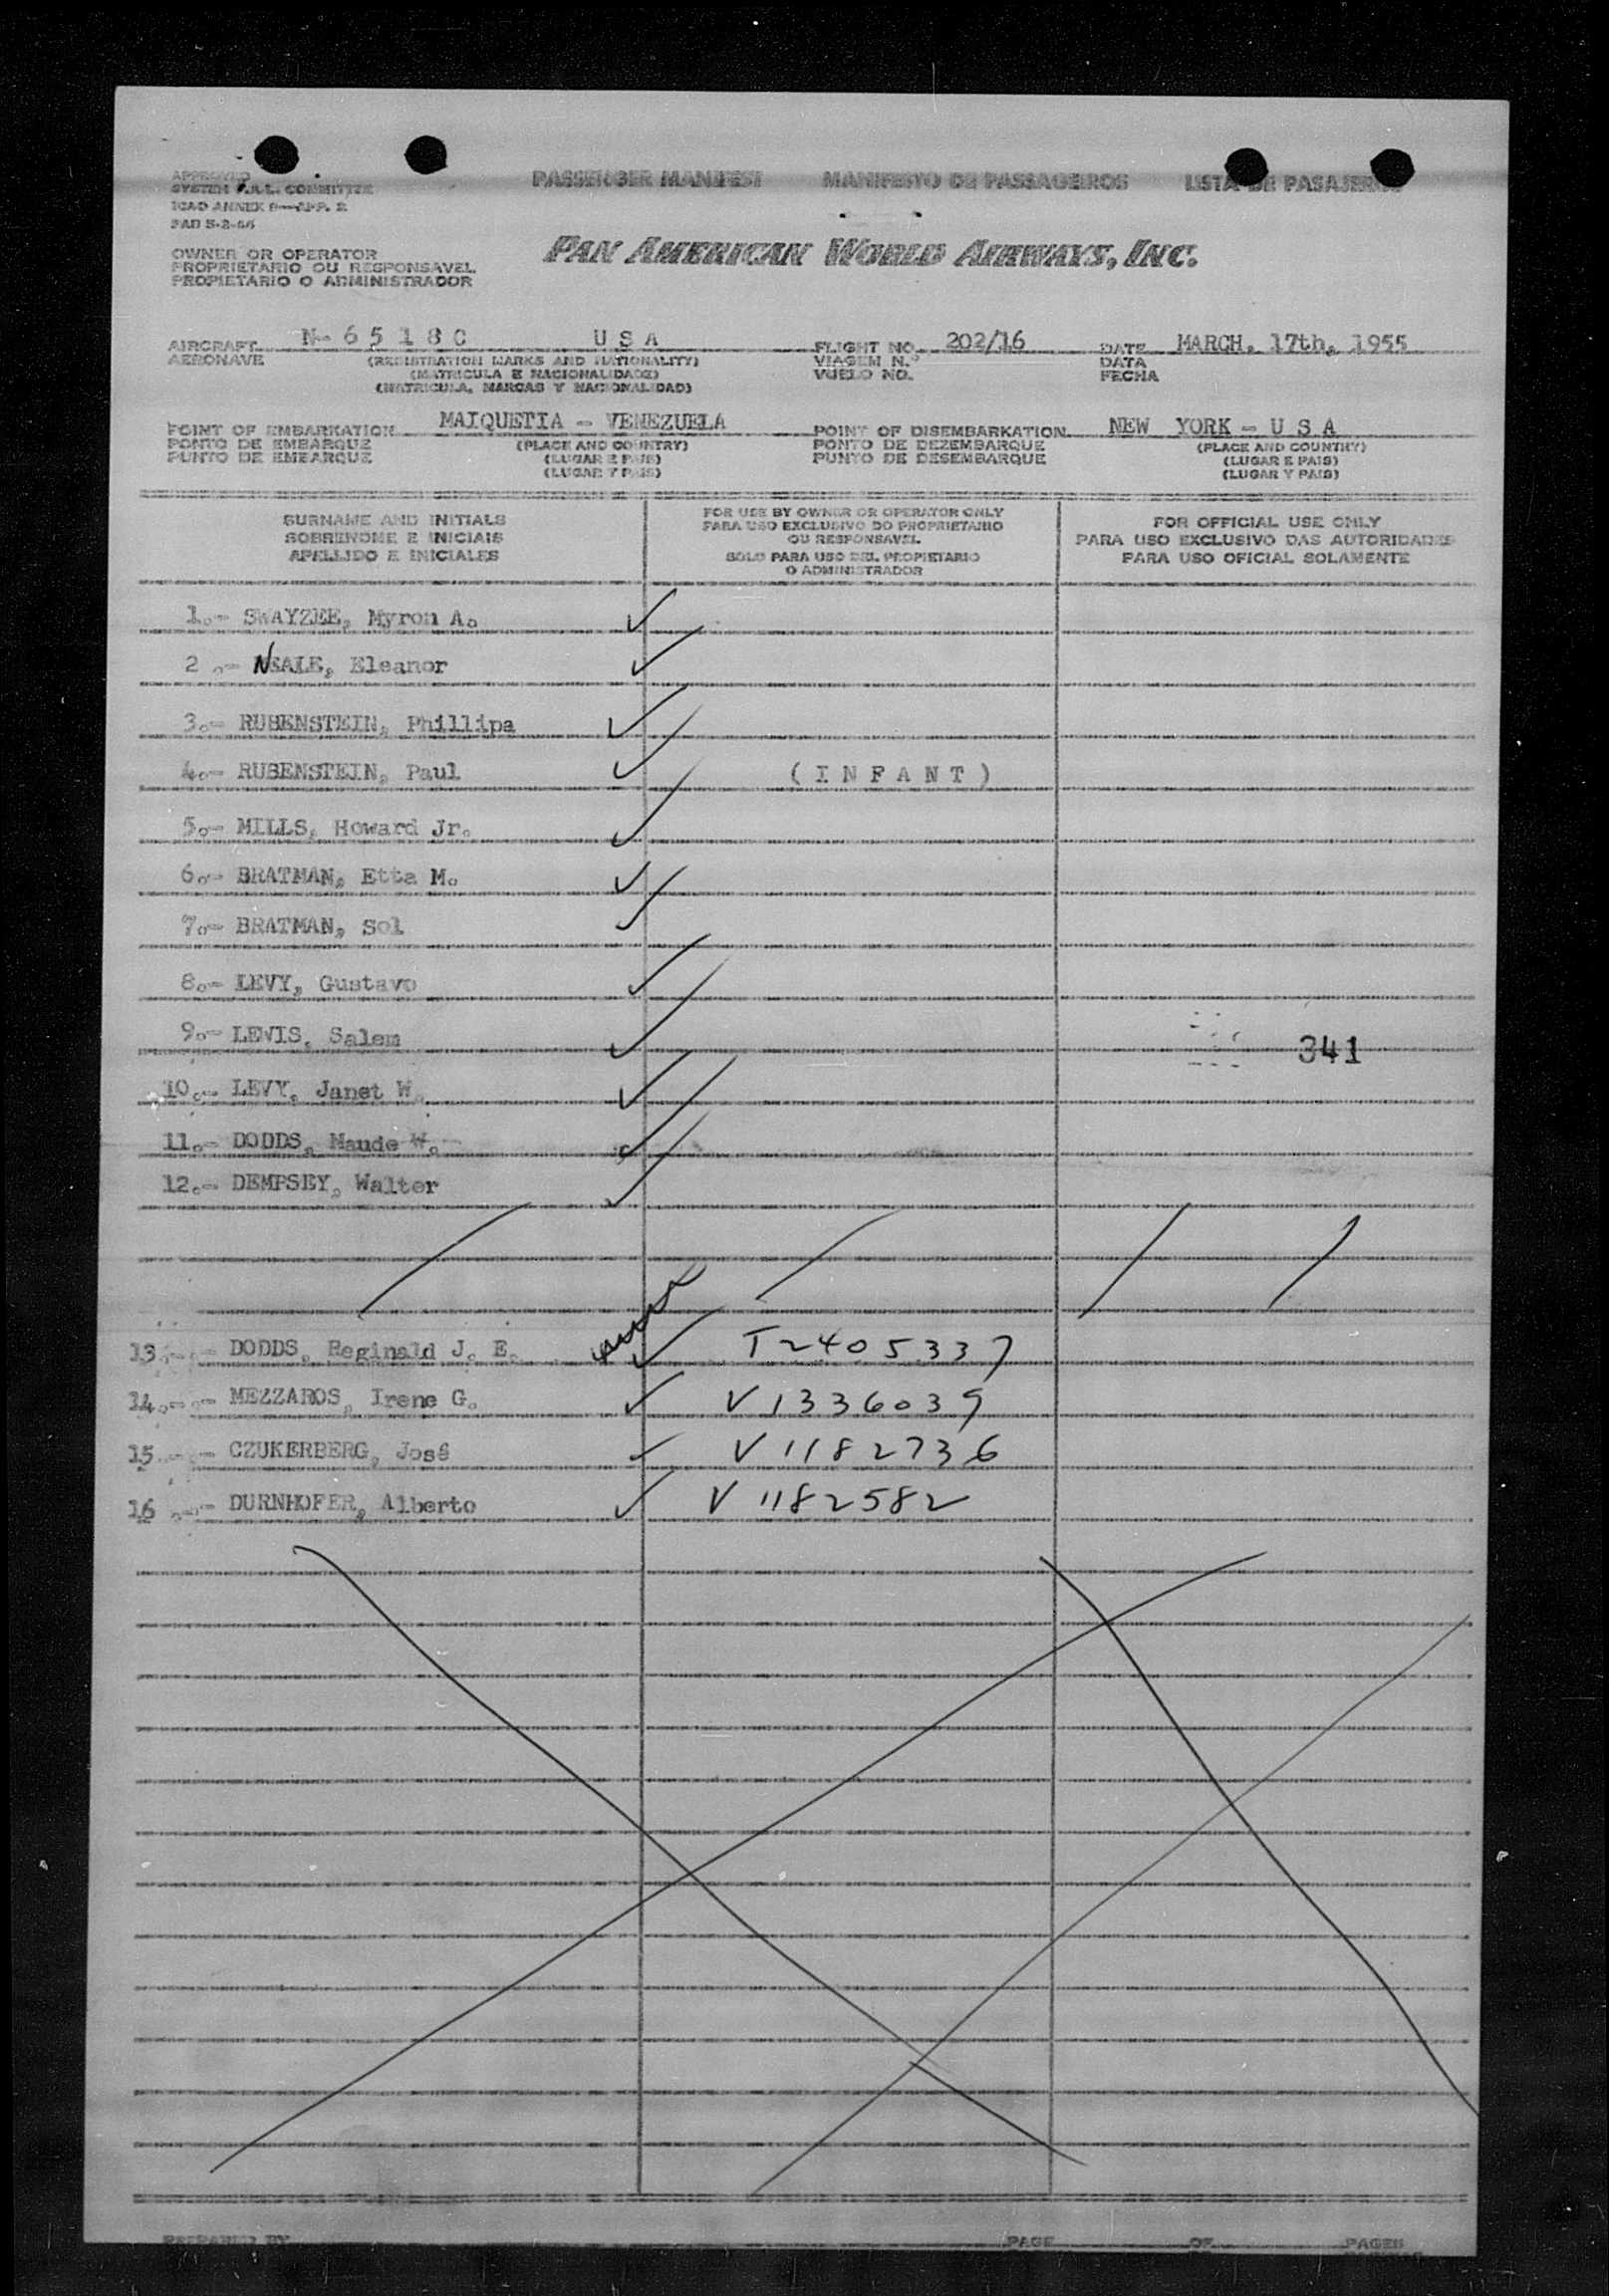 APPROVED
SYSTEM F.A.L. COMMITTEE
ICAO ANNEX 9—APP. 2
PASSENGER MANIFEST MANIFESTO DE PASSAGEIROS LISTA DE PASAJEROS
OWNER OR OPERATOR
PROPRIETARIO OU RESPONSAVEL
PROPIETARIO O ADMINISTRADOR
PAN AMERICAN WORLD AIRWAYS, INC.
AIRCRAFT N- 6 5 1 8 C U S A FLIGHT NO. 202/16 DATE MARCH. 17th, 1955
AERONAVE (REGISTRATION MARKS AND NATIONALITY) VIAGEM N.º DATA
(MATRICULA E NACIONALIDADE) VUELO NO. FECHA
(MATRICULA, MARCAS Y NACIONALIDAD)
POINT OF EMBARKATION MAIQUETIA - VENEZUELA POINT OF DISEMBARKATION NEW YORK - U S A
PONTO DE EMBARQUE (PLACE AND COUNTRY) PONTO DE DEZEMBARQUE (PLACE AND COUNTRY)
PUNTO DE EMBARQUE (LUGAR E PAIS) PUNTO DE DESEMBARQUE (LUGAR E PAIS)
(LUGAR Y PAIS) (LUGAR Y PAIS)
SURNAME AND INITIALS
SOBRENOME E INICIAIS
APELLIDO E INICIALES
FOR USE BY OWNER OR OPERATOR ONLY
PARA USO EXCLUSIVO DO PROPRIETARIO
OU RESPONSAVEL
SOLO PARA USO DEL PROPIETARIO
O ADMINISTRADOR
FOR OFFICIAL USE ONLY
PARA USO EXCLUSIVO DAS AUTORIDADES
PARA USO OFICIAL SOLAMENTE
1.- SWAYZEE, Myron A.
2 .- NEALE, Eleanor
3.- RUBENSTEIN, Phillipa
4.- RUBENSTEIN, Paul ( I N F A N T )
5.- MILLS, Howard Jr.
6.- BRATMAN, Etta M.
7.- BRATMAN, Sol
8.- LEVY, Gustavo
9.- LEWIS, Salem 341
10.- LEVY, Janet W.
11.- DODDS, Maude W.
12.- DEMPSEY, Walter
13.-- DODDS, Reginald J. E. T2405337
14.-- MEZZAROS, Irene G. V1336039
15.-- CZUKERBERG, José V1182736
16 .-- DURNHOFER, Alberto V1182582
PREPARED BY PAGE OF PAGES